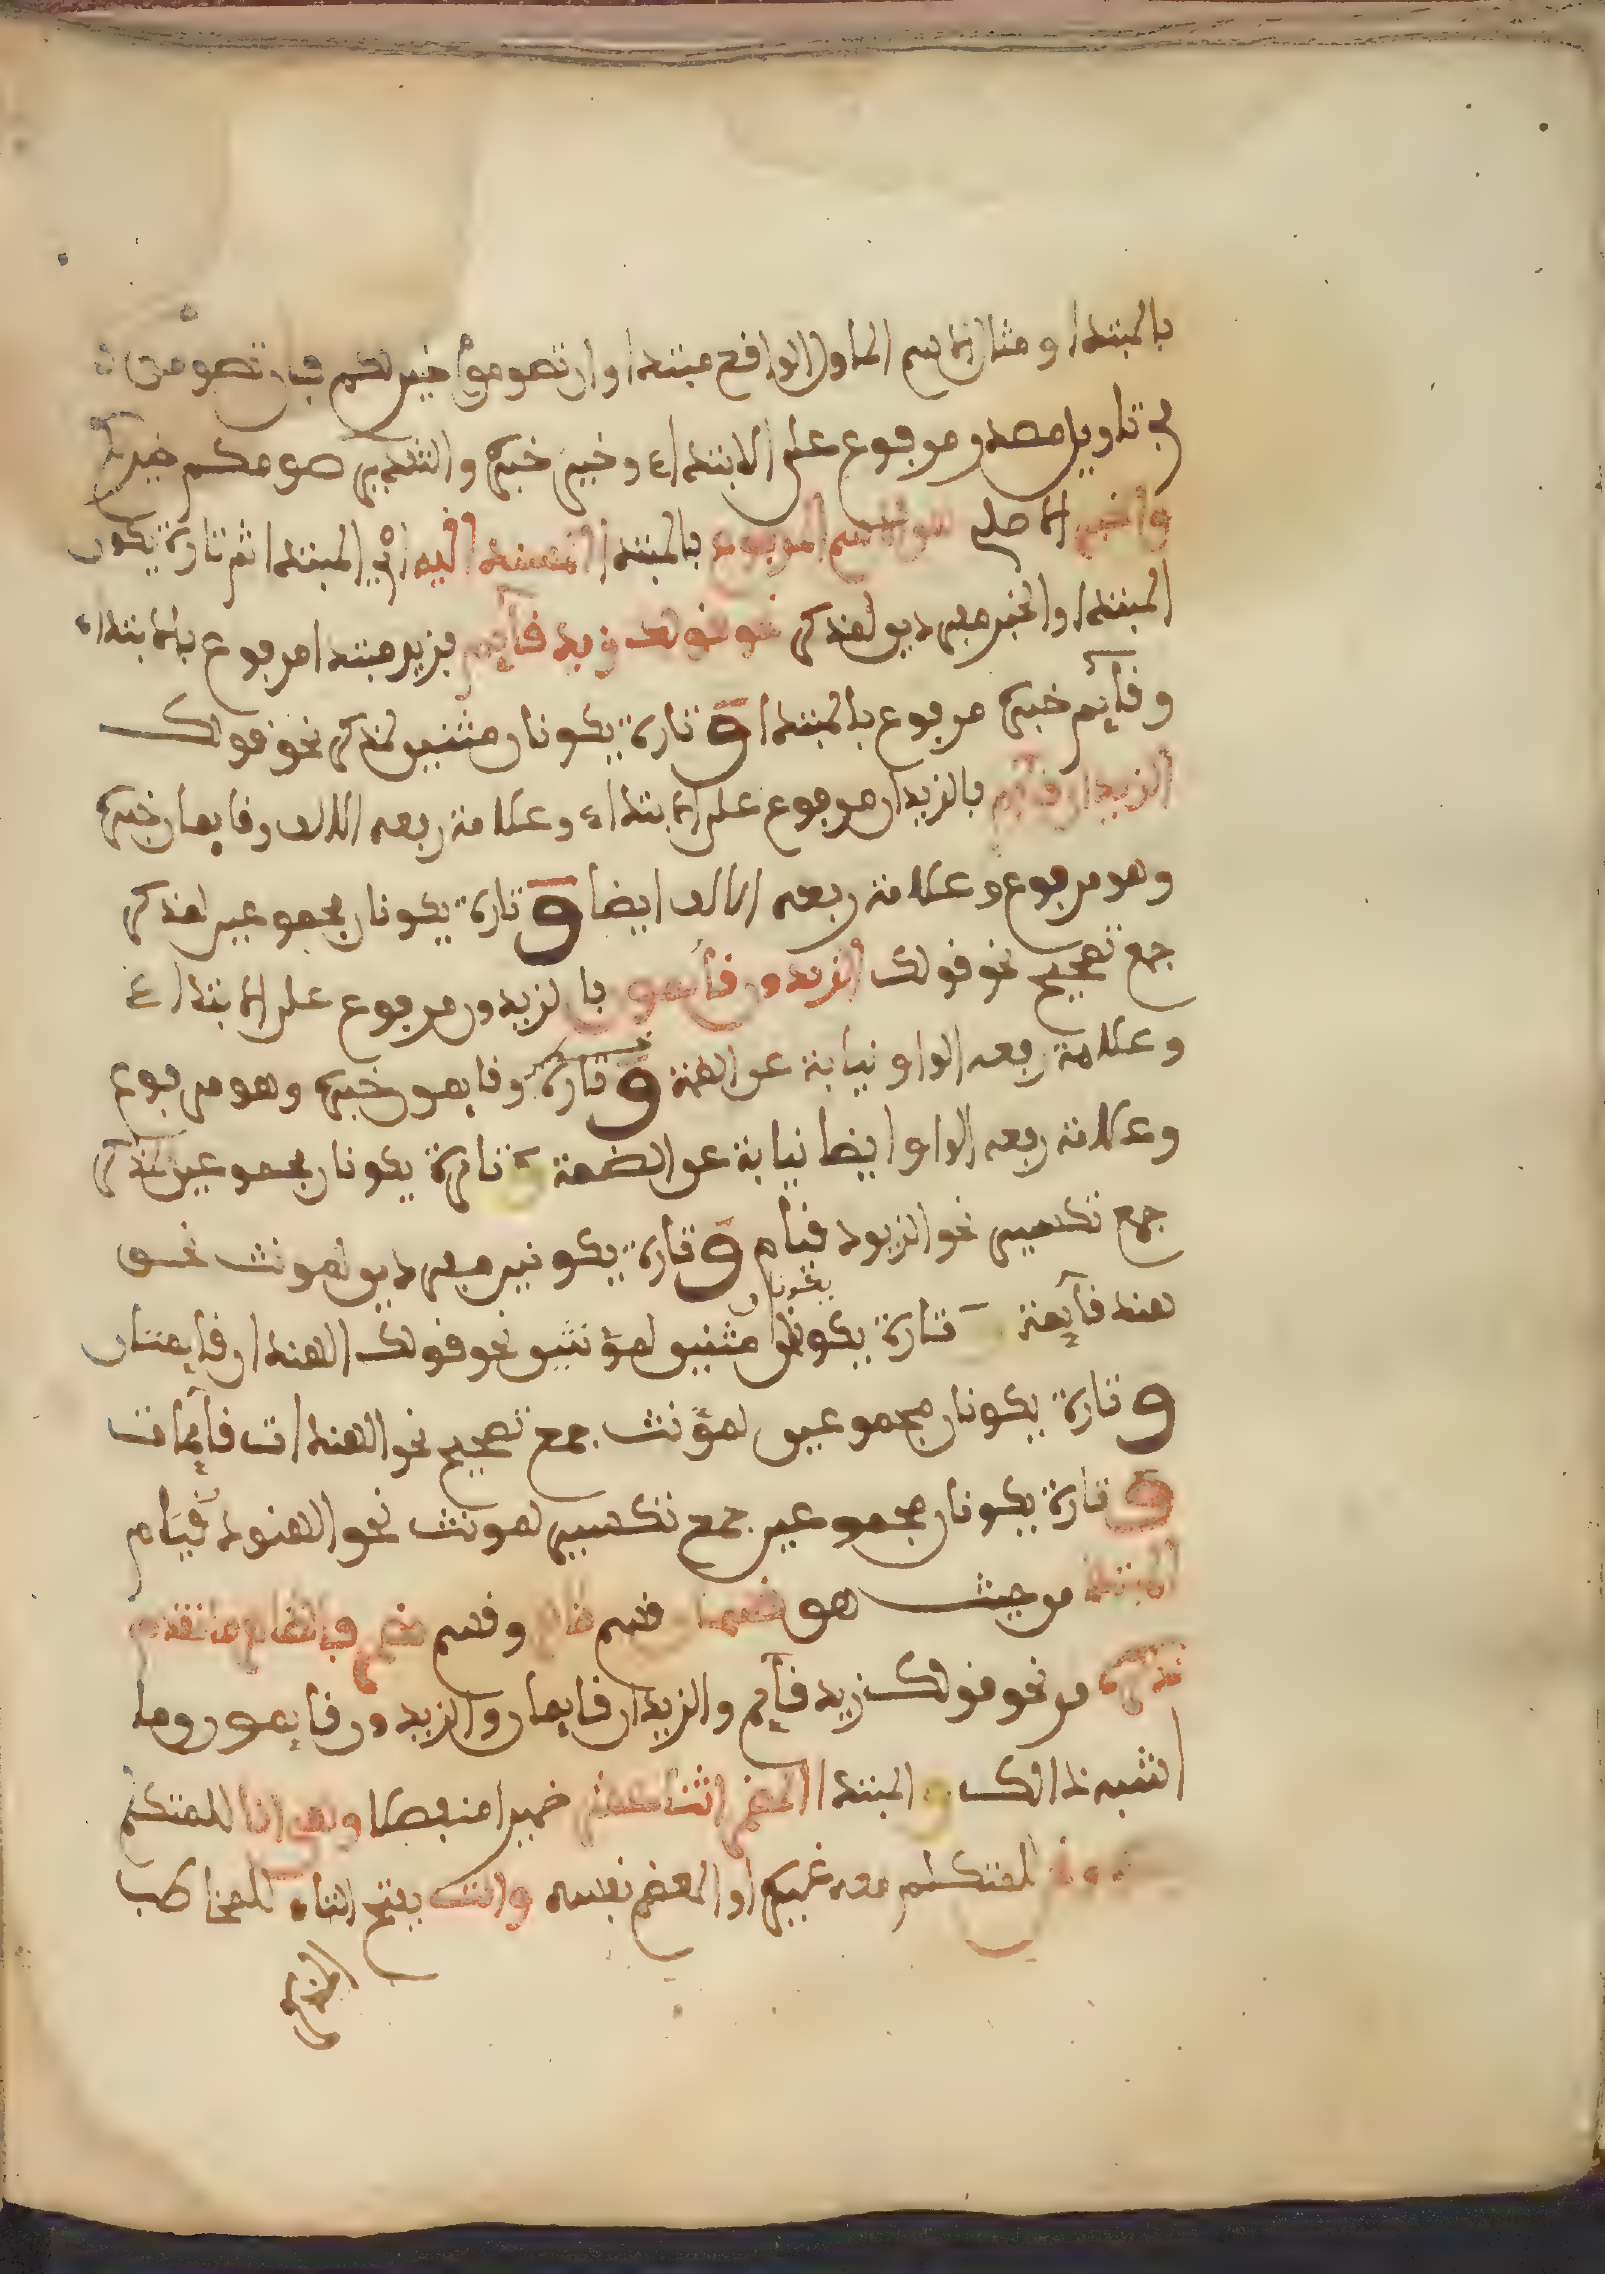 بالمبتدا ومثال الاسم الماول الواقع مبتدا وان تصوموا خير لكم فان تصوموا
في تاويل مصدر مرفوع على الابتداء وخير خبره والتقدير صومكم خير لكم
والخبر الاصلي هو الاسم المرفوع بالمبتدا المسند اليه اي المبتدا ثم تارة يكون
المبتدا والخبر مفردين لمذكر نحو قولك زيد قآئم فزيد مبتدا مرفوع بالابتداء
وقآئم خبره مرفوع بالمبتدا وتارة يكونان مثنيين لمذكر نحو قولك
الزيدان قآئم بالزيدان مرفوع على الابتداء وعلامة رفعه الالف وقايمان خبره
وهو مرفوع وعلامة رفعه الالف ايضا وتارة يكونان مجموعين لمذكر
جمع تصحيح نحو قولك الزيدون قآئمون بالزيدون مرفوع على الابتداء
وعلامة رفعه الواو نيابة عن الضمة وتارة وقايمون خبره وهو مرفوع
وعلامة رفعه الواو ايضا نيابة عن الضمة وتارة يكونان مجموعين لمذكر
جمع تكسير نحو الزيود قيام وتارة يكونين مفردين لمونث نحو
هند قآئمة وتارة يكونان مثنيين لمؤنثين نحو قولك الهندان قايمتان
يكونان
وتارة يكونان مجموعين لمؤنث جمع تصحيح نحو الهندات قآئمات
وتارة يكونان مجموعين جمع تكسير لمونث نحو الهنود قيام
المبتدا من حيث هو قسمان قسم ظاهر وقسم مضمر فالظاهر ما تقدم
ذكره من نحو قولك زيد قآئم والزيدان قايمان والزيدون قايمون وما
اشبه ذالك و المبتدا المضمر اثنا عشر ضميرا منفصلا وهي انا للمتكلم
ونحن للمتكلم معه غيره او المعظم نفسه وانت بفتح التاء للمخاطب
المذكر